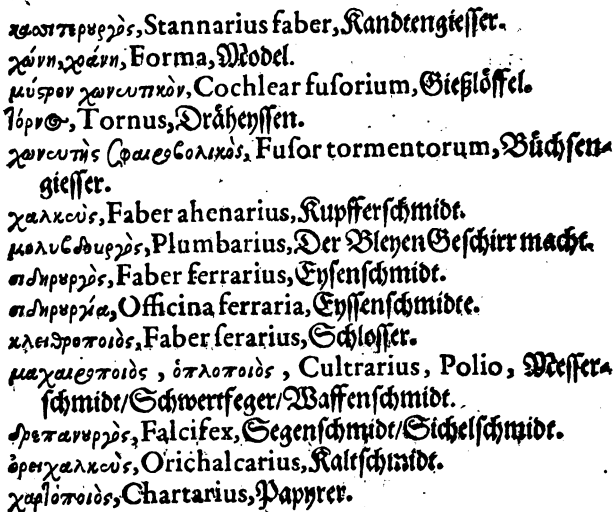 κασσιτερυργὸς, Stannarius faber, Kandtengiesser.
χώνη, χοάνη, Forma, Model.
μύστρον χωνευτικὸν, Cochlear fusorium, Gießlöffel.
τόρνος, Tornus, Dräheyssen.
χωνευτὴς σφαιροβολικὸς, Fusor tormentorum, Büchsen-
giesser.
χαλκεὺς, Faber ahenarius, Kupfferschmidt.
μολυβδουργὸς, Plumbarius, Der Bleyen Geschirr macht.
σιδηρυργὸς, Faber ferrarius, Eysenschmidt.
σιδηρυργία, Officina ferraria, Eyssenschmidte.
κλειθροποιὸς, Faber serarius, Schlosser.
μαχαιροποιὸς, ὁπλοποιὸς, Cultrarius, Polio, Messer-
schmidt/Schwertfeger/Waffenschmidt.
δρεπανυργὸς, Falcifex, Segenschmidt/Sichelschmidt.
ὀρειχαλκεὺς, Orichalcarius, Kaltschmidt.
χαρτοποιὸς, Chartarius, Papyrer.